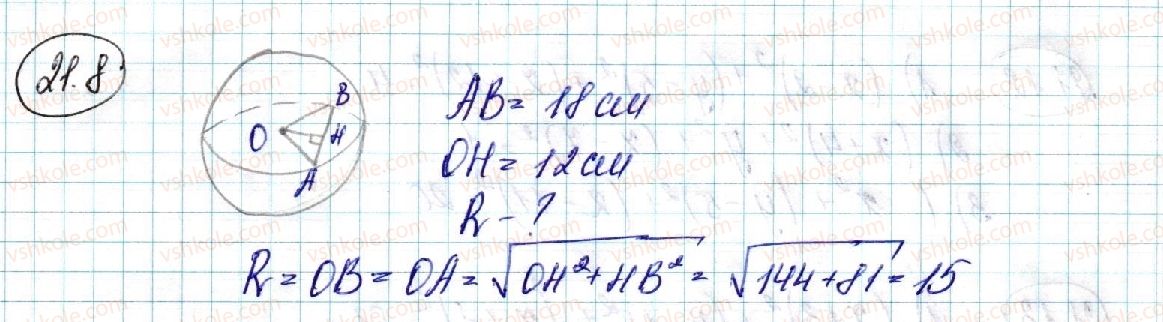 21.8
O B H A
AB = 18 см
OH = 12 см
R - ?
R = OB = OA = √(OH²+HB²) = √(144+81) = 15
vshkole.com